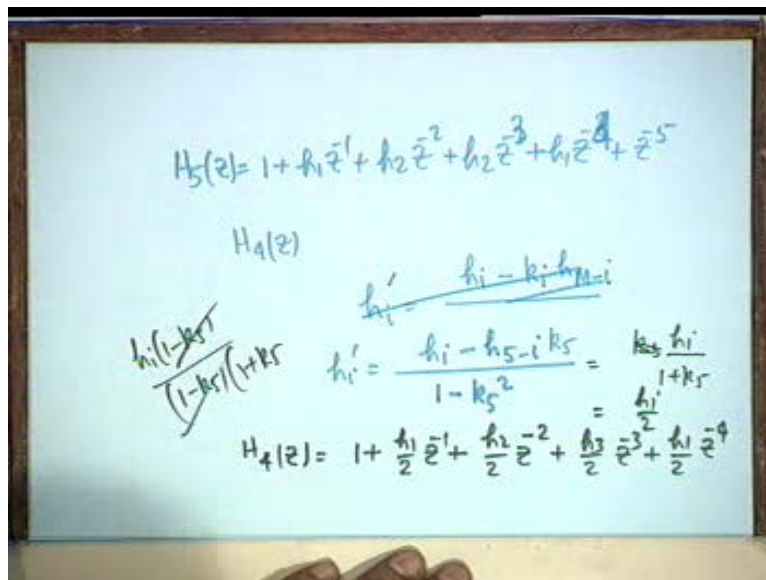 H₅(z) = 1 + h₁z̄¹ + h₂z̄² + h₂z̄³ + h₁z̄⁴ + z̄⁵
H₄(z)
hᵢ′ = (hᵢ − kᵢ h_{M−i})
hᵢ(1−k₅) / (1−k₅)(1+k₅
hᵢ′ = (hᵢ − h₅₋ᵢ k₅) / (1 − k₅²) = hᵢ / (1 + k₅)
= hᵢ / 2
H₄(z) = 1 + h₁/2 z̄¹ + h₂/2 z̄² + h₃/2 z̄³ + h₁/2 z̄⁴